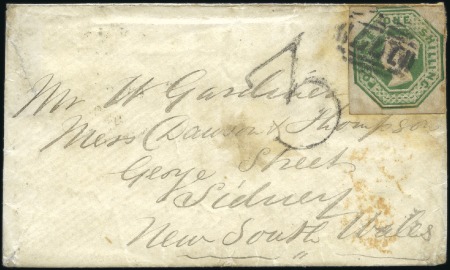 ONE SHILLING
Mr W Gardiner
Mess Dawson & Thompson
George Street
Sidney
New South Wales